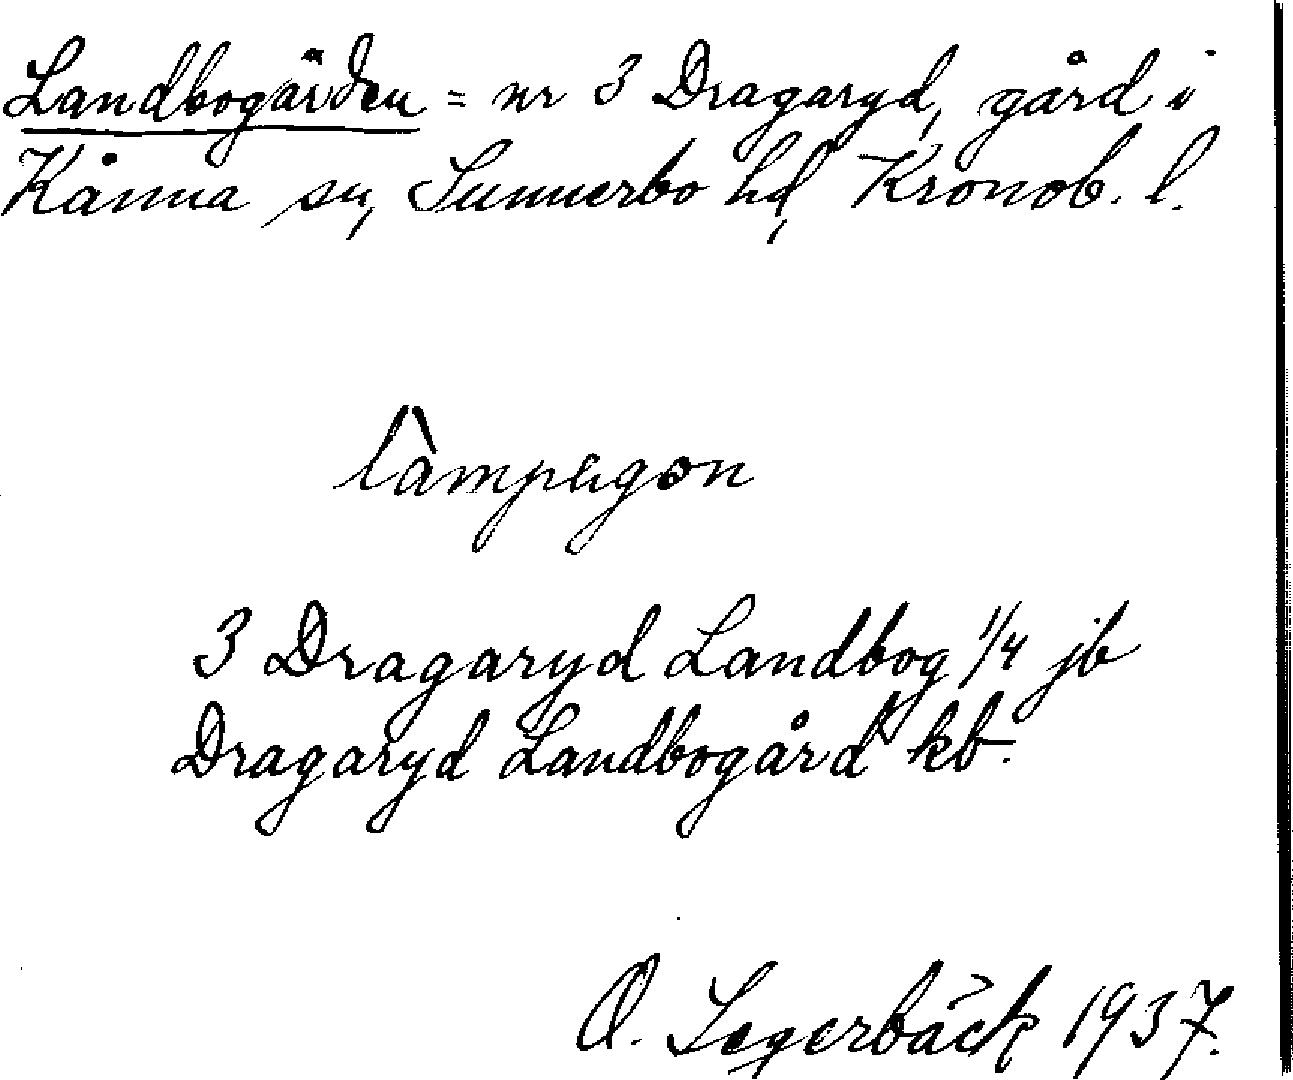 Landbogården = nr 3 Dragaryd, gård i
Kånna sn, Sunnerbo hd, Kronob. l.
3 Dragaryd Landbog 1/4 jb
Dragaryd Landbogård kb.
O. Segerbäck 1937.